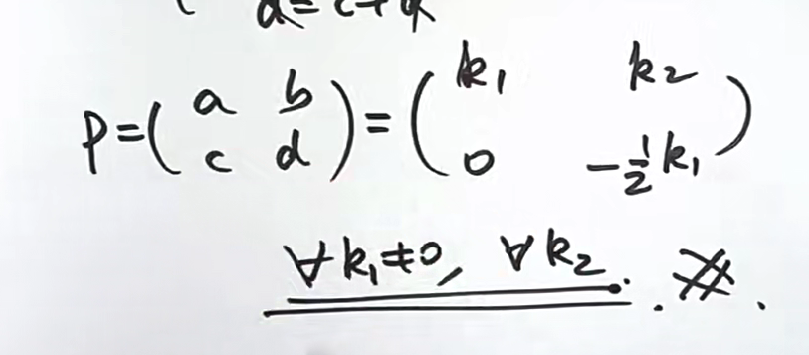 d=c+d
P=( a b
c d )=( k₁ k₂
0 -½k₁ )
∀k₁≠0, ∀k₂. .